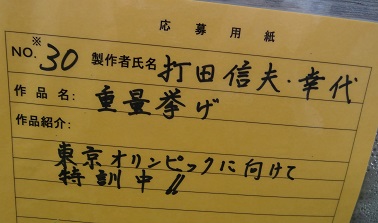 応募用紙
※
NO. 30 製作者氏名 打田信夫・幸代
作品名: 重量挙げ
作品紹介:
東京オリンピックに向けて
特訓中!!